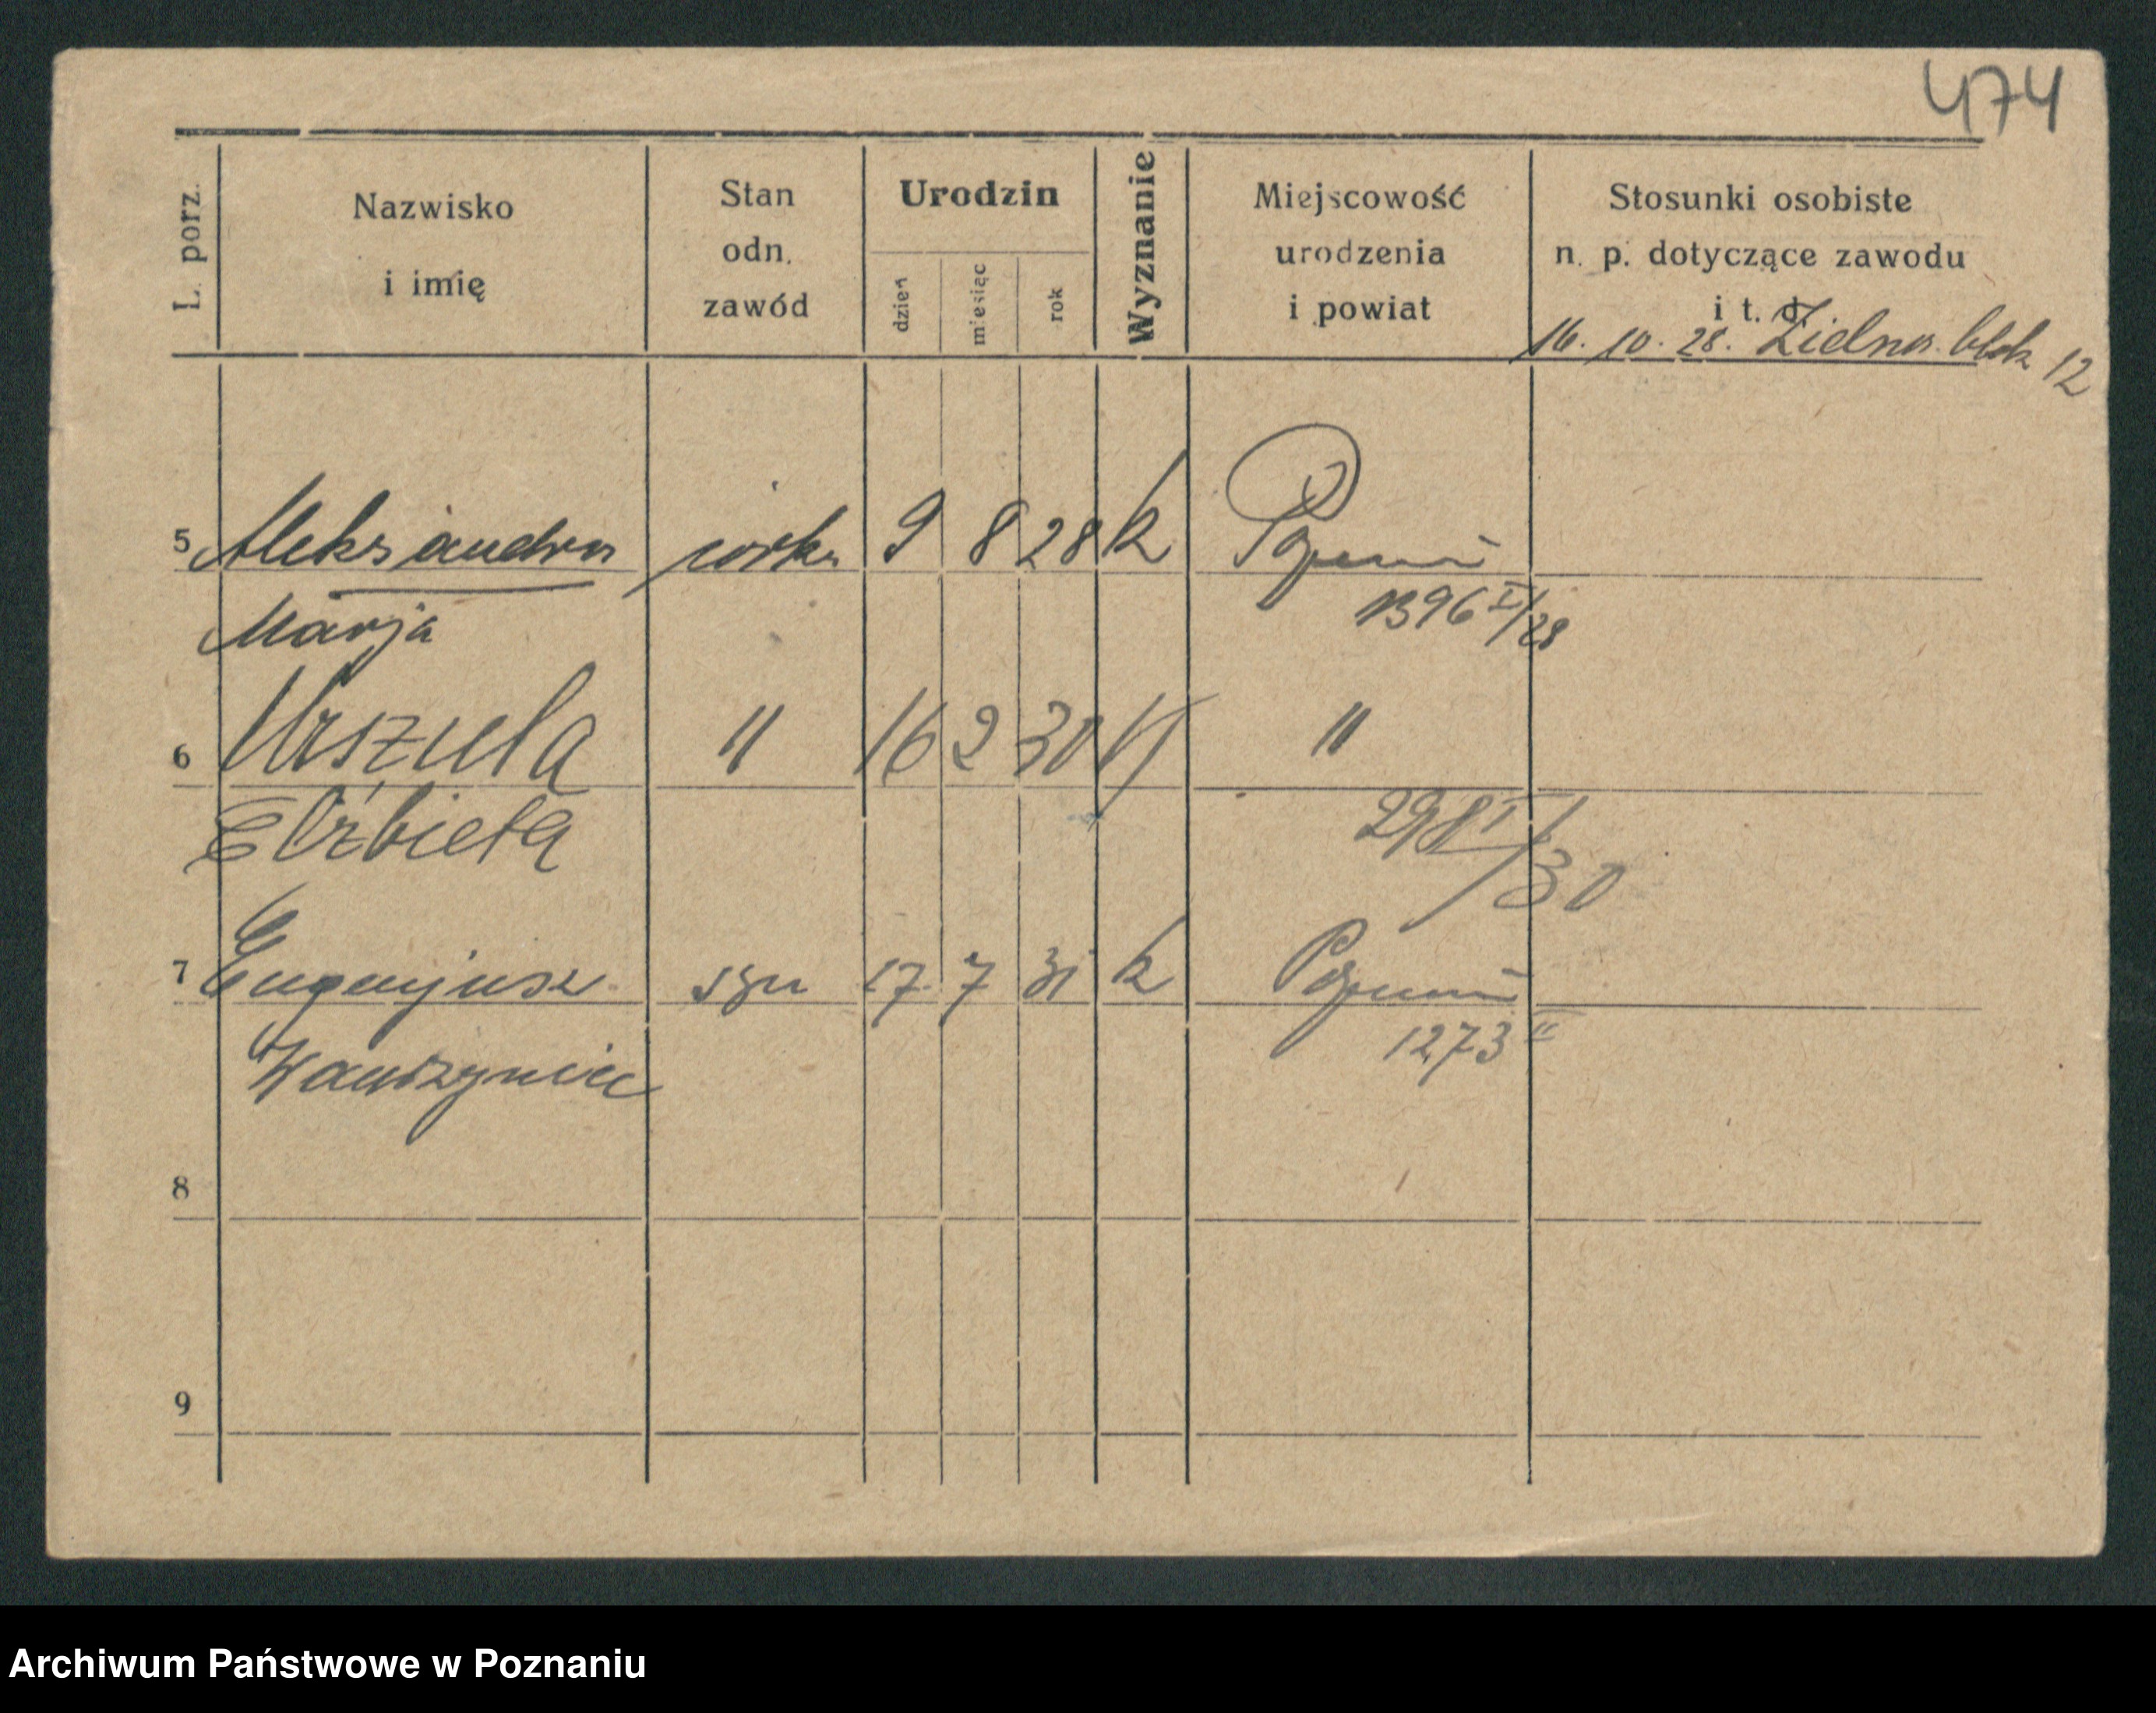 474
L. porz.
Nazwisko
i imię
Stan
odn.
zawód
Urodzin
dzień
miesiąc
rok
Wyznanie
Miejscowość
urodzenia
i powiat
Stosunki osobiste
n. p. dotyczące zawodu
i t. d.
16. 10. 28. Zielna blok 12
5 Aleksandra córka 9 8 28 k Poznań
Marja 1396 I/28
6 Urszula " 16 2 30 K "
Elżbieta 298 I/30
7 Eugenjusz syn 17. 7 31 k Poznań
Wawrzyniec 1273 II
8
9
Archiwum Państwowe w Poznaniu